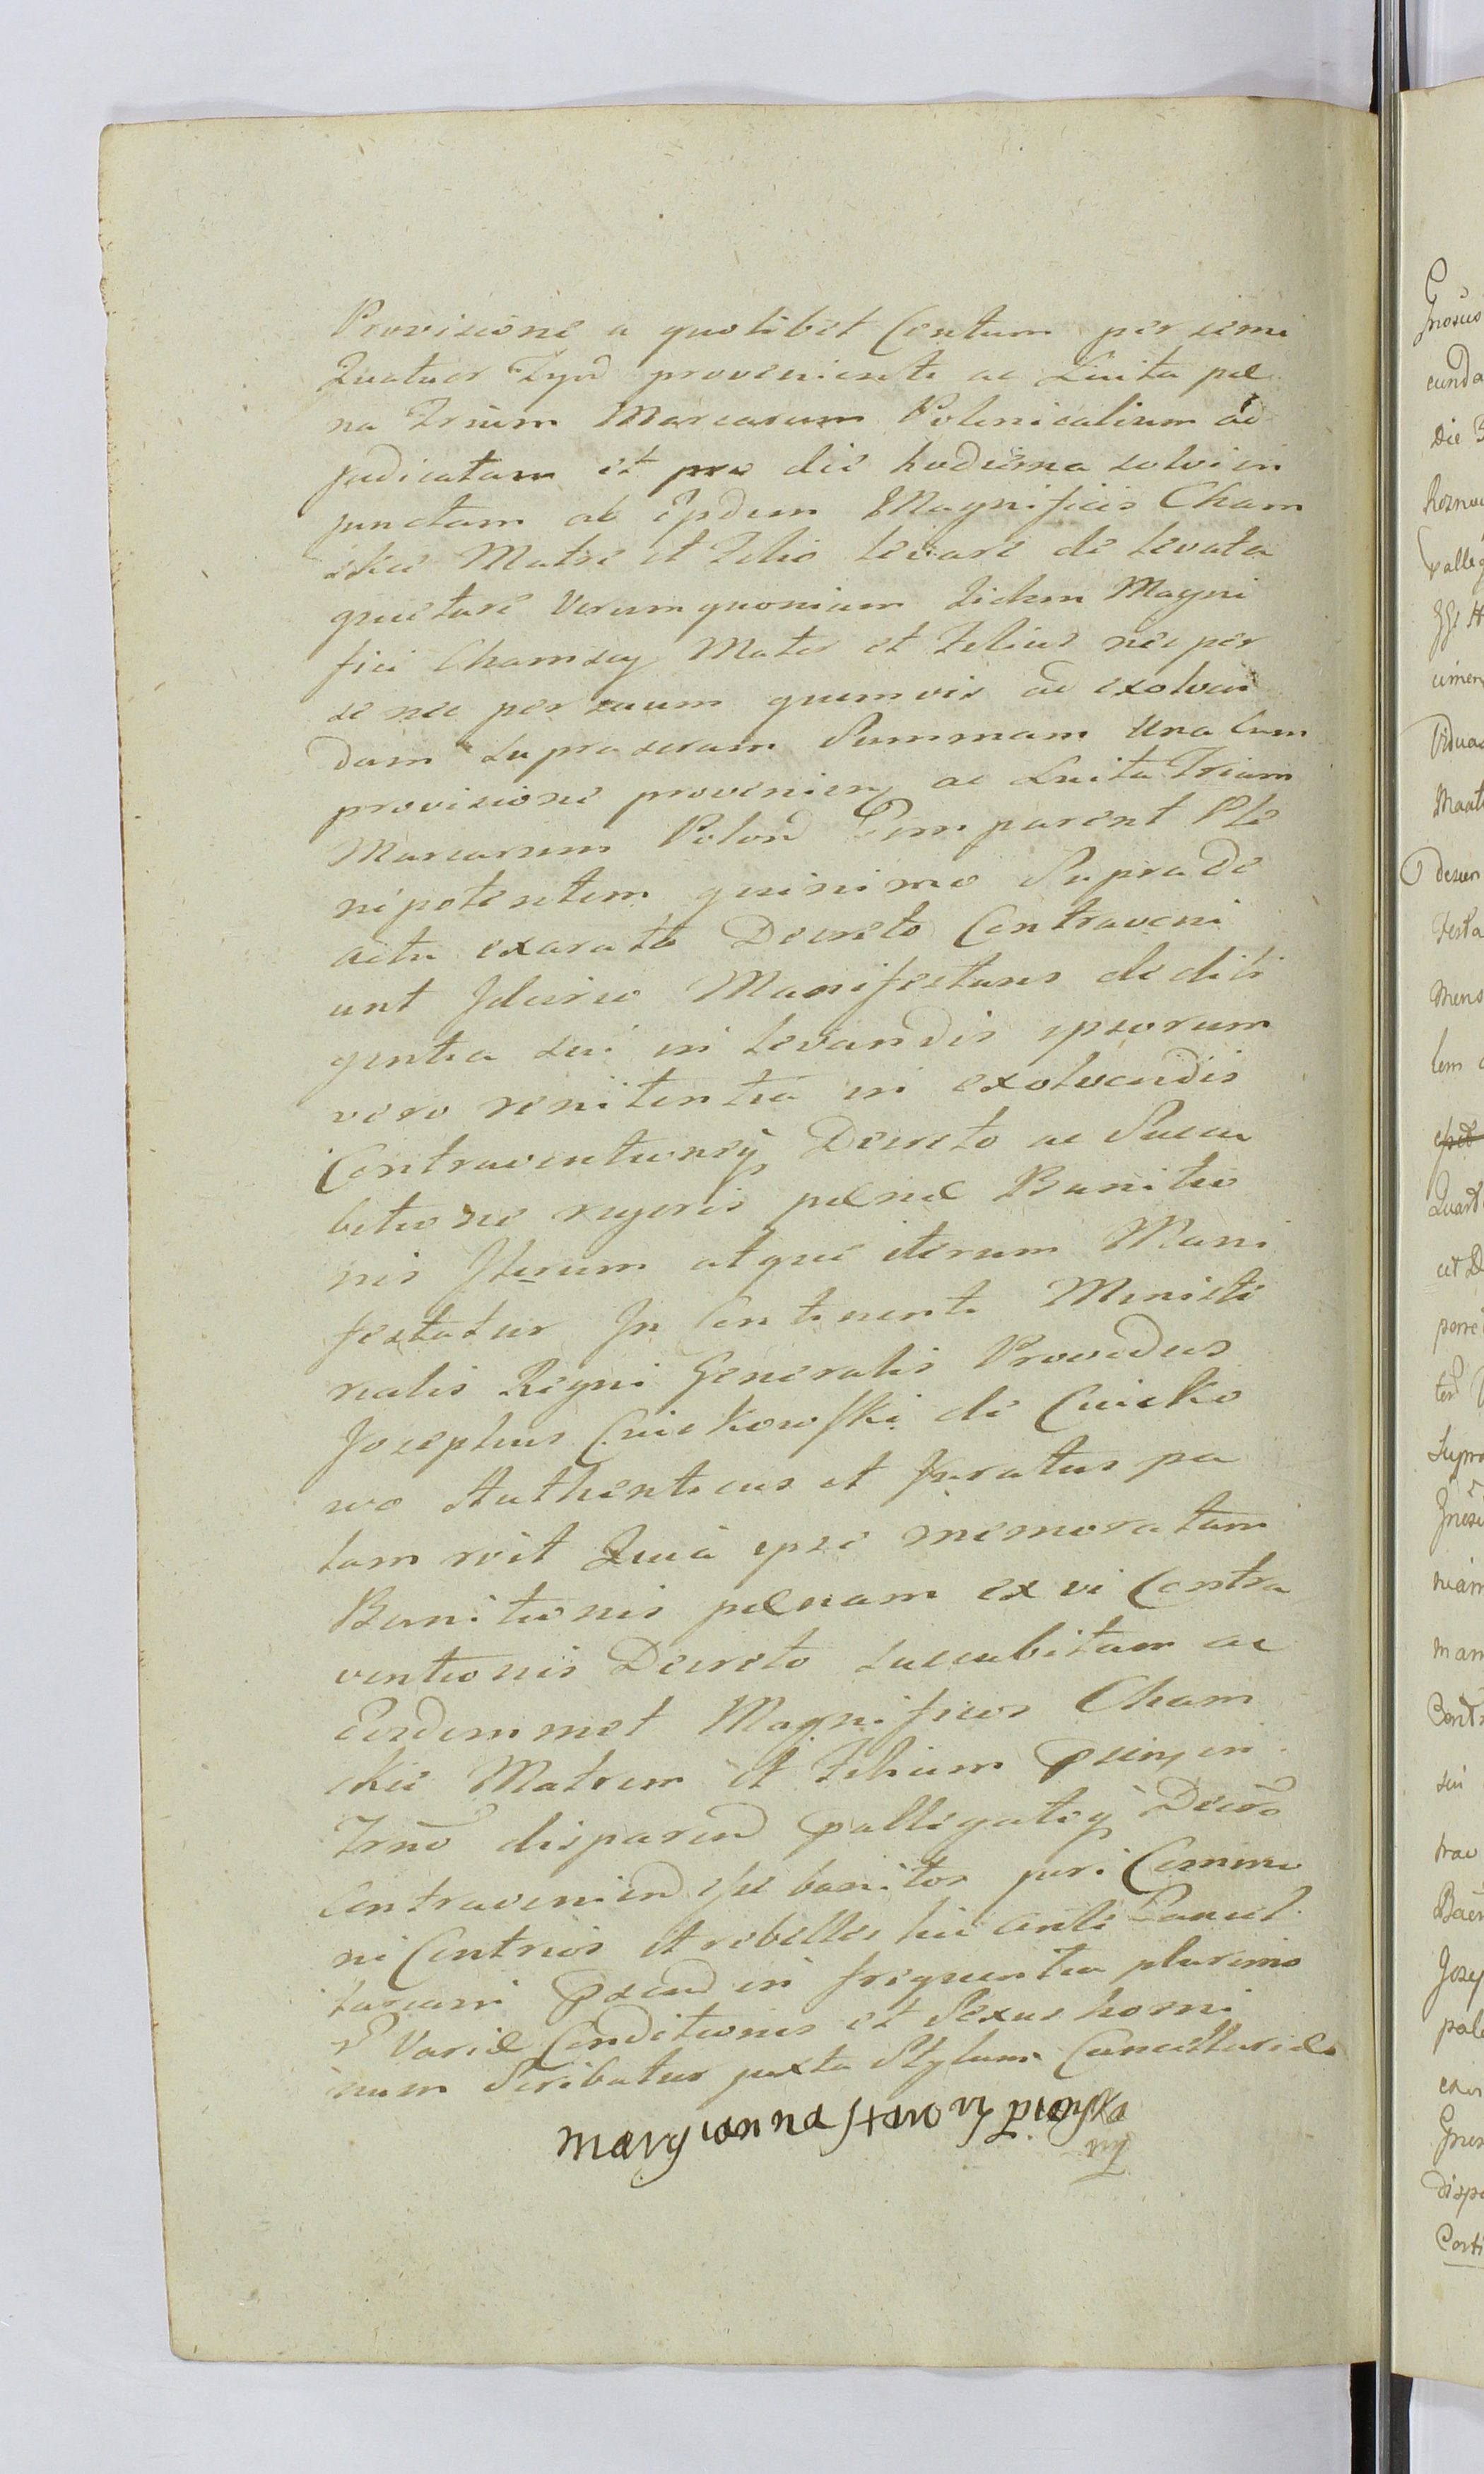 Provisione a quolibet Centum per semi
Quatuor Typd provenienti ac Luita pæ
na Trium Marcarum Polonicalium ad
judicatam et pro die hodierna solvi in
junctam ab Epdem Magnificis Cham
skie Matre et Filio levare de levata
quietare Verum quoniam Iidem Magni
fici Chamscy Mater et Filius nec per
se nec per suum quemvis ad exolven
dam supra seram Summam Una cum
provisione provenien ac Luita Trium
Marcarum Polond Comparent Ple
nipotentem quinimo Supra de
actu exarato Decreto Contraveni
unt Idcirco Manifestans de dili
gentia sui in levandis ipsorum
vero renitentia in exolvendis
Contraventioneq Decreto ac Succu
bitione rugoris pænæ Banitio
nis Iterum atque iterum Mani
festatur In Continenti Ministe
rialis Regni Generalis Providus
Josephus Cwiekowski de Cwieko
wo Authenticus et Juratus pa
lam roit Quia ipse memoratam
Banitionis pænam ex vi Contra
ventionis Decreto succubitam ac
Eosdemmet Magnificos Cham
skie Matrem et Filium
disparend palligatoq Decro
Contraveniend esse banitos juri Commu
ni Contrios et rebelles hic ante Cancel
lariam in frequentia plurimo
R Variæ Conditionis et Sexus homi
num Scribatur juxta Stylum Cancellariæ
Maryianna